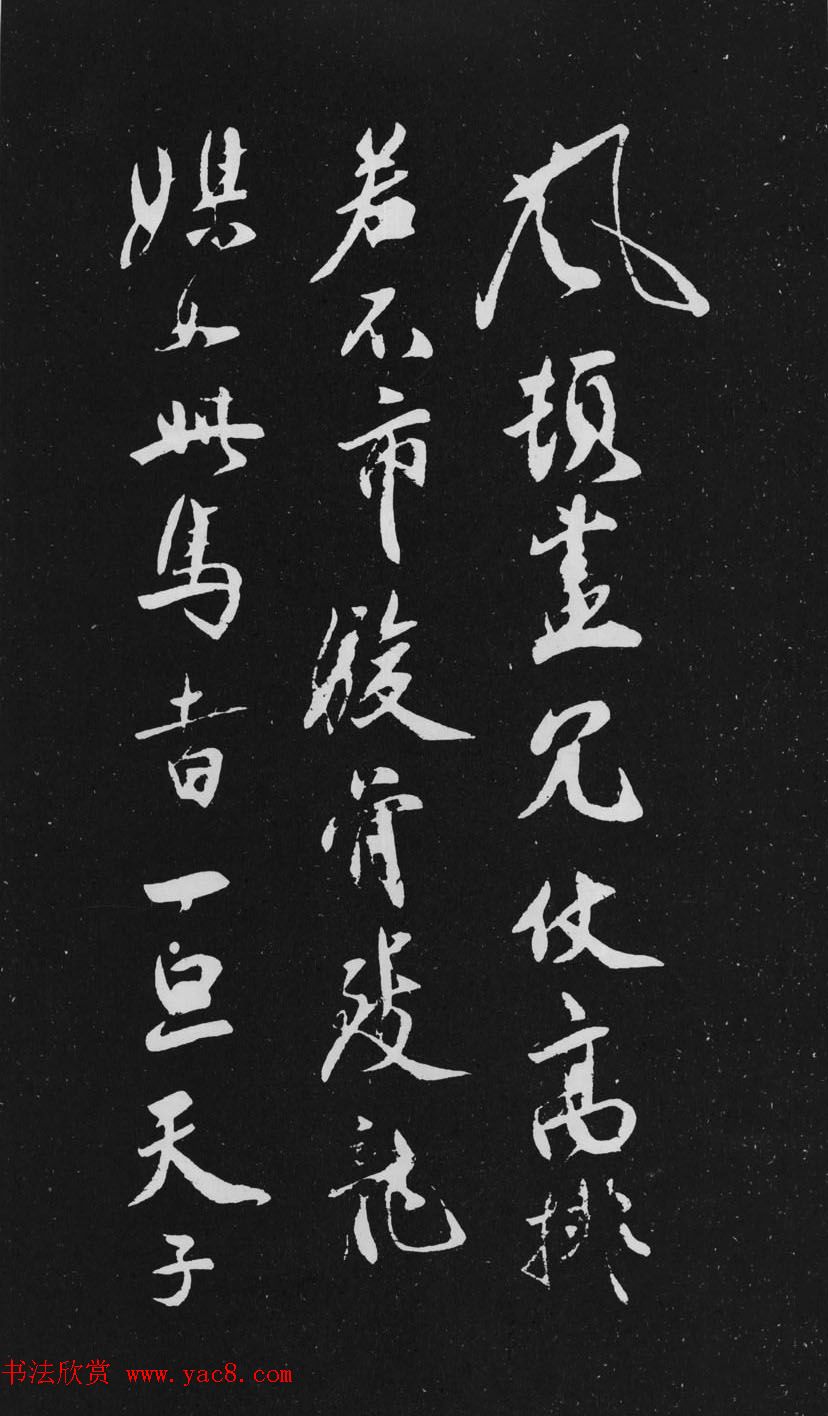 風頓盡冗仗高排
若不市駿骨致龍
媒如此馬者一旦天子
书法欣赏 www.yac8.com